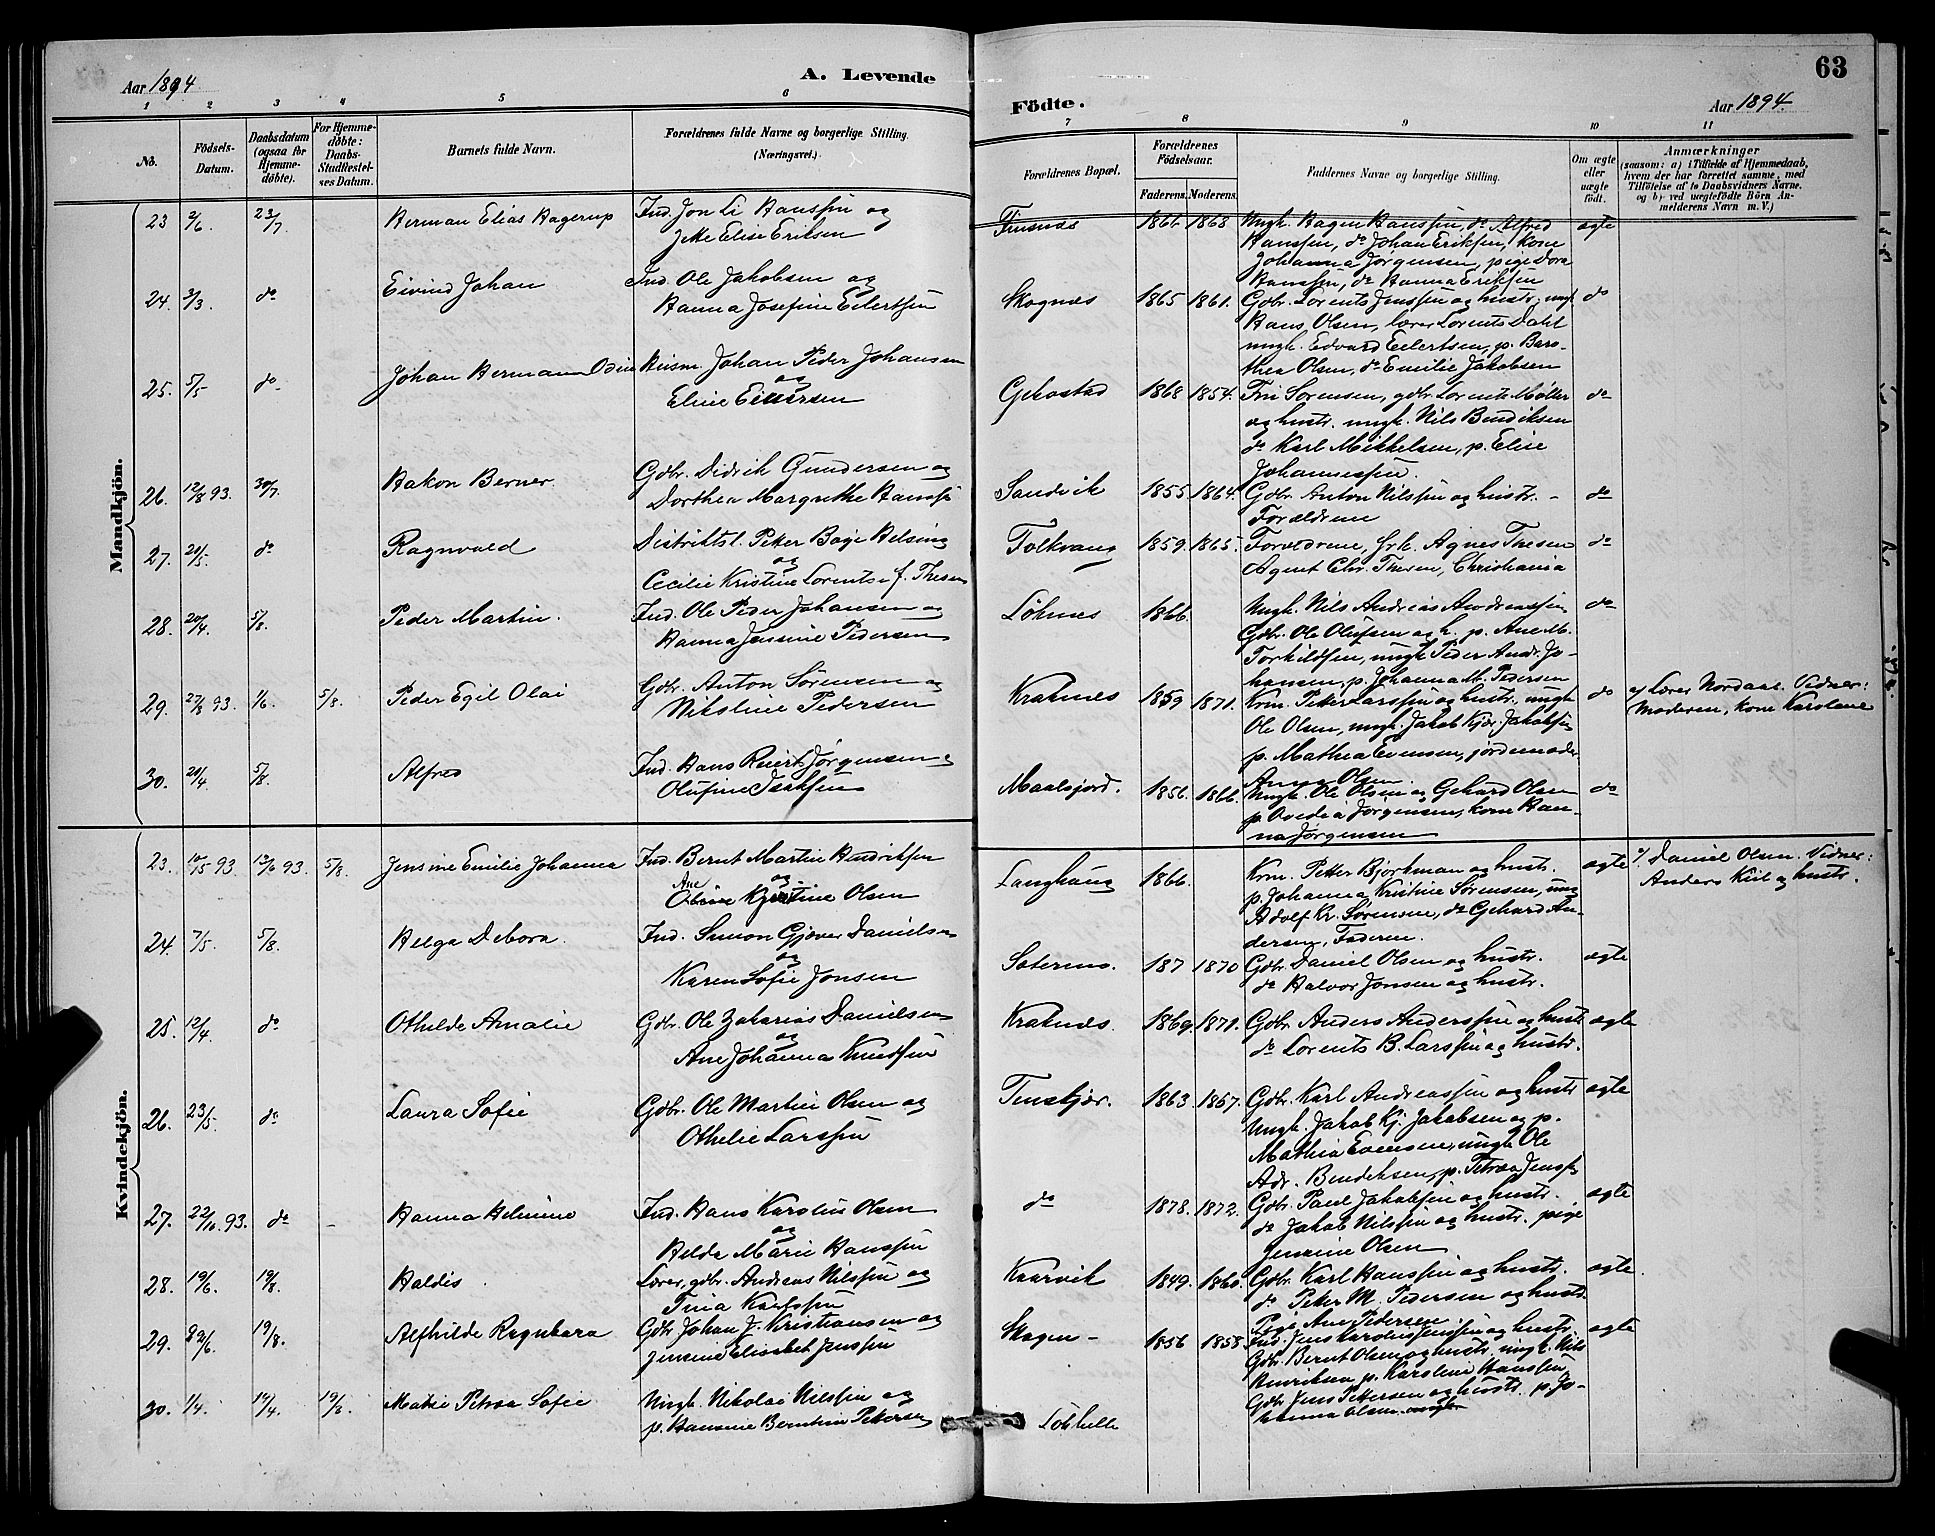 Aar 1894
A. Levende
1 2 3 4 5 6
No.
Födsels-
Datum.
Daabsdatum
(ogsaa for
Hjemme-
døbte).
For Hjemme-
døbte:
Daabs-
Stadfæstel-
ses Datum.
Barnets fulde Navn.
Forældrenes fulde Navne og borgerlige Stilling.
(Næringsvei.)
Mandkjön.
23 2/6. 23/7 Herman Elias Hagerup Ind. Jon Li Hanssen og
Elise Eriksen
24. 3/3. do Eivind Johan Ind. Ole Jakobsen og
Hanna Josefine Eilertsen
25. 5/5 do Johan Herman Odin Husm. Johan Peder Johansen
og
Eline Einersen
26. 12/8 93. 30/7 Hakon Berner. Gdbr. Didrik Gundersen og
Dorthea Margrethe Hanss
27. 20/5. do Ragnvald Distriktsl. Petter Boje Helsing
og
Cecilie Kristine Lorentse f. Thesen
28. 20/4. 5/8. Peder Martin. Ind. Ole Peder Johansen og
Hanna Jensine Pedersen
29. 27/8 93. 1/6. 5/8. Peder Egil Olai Gdbr. Anton Sørensen og
Nikoline Pedersen
30. 21/4 5/8. Alfred Ind. Hans Reiert Jørgensen
Olufine Isaksen
Kvindekjön.
23. 10/5 93 13/6 93. 5/8. Jensine Emilie Johanna Ind. Bernt Martin Hendriksen
og
Ane
Kristine Olsen
24. 7/5. 5/8. Helga Debora. Ind. Simon Gjæver Danielsen
og
Karen Sofie Jonsen
25. 12/4. do Othilde Amalie Gdbr. Ole Zakarias Danielsen
og
Ane Johanna Knudsen
26. 23/5. do Laura Sofie Gdbr. Ole Martin Olsen og
Othelie Larssen
27. 22/10. 93. do - Hanna Helmine Ind. Hans Karolius Olsen
og
Helda Marie Hanssen
28. 19/6. 19/8. Haldis. Lærer, gdbr. Andreas Nilssen og
Tina Karlssen
29. 29/6. 19/8. Alfhilde Ragnhara Gdbr Johan J. Kristiansen og
Jensine Elisabet Jenssen
30. 1/4. 14/4. 19/8. Petrea Sofie Ungk. Nikolai Nilssen og
p. Hansine Berntine Pettersen
Födte.
63
Aar 1894.
7 8 9 10 11
Forældrenes Bopæl.
Forældrenes
Födselsaar.
Faderens. Moderens.
Faddernes Navne og borgerlige Stilling.
Om ægte
eller
uægte
födt.
Anmærkninger
(saasom: a) i Tilfælde af Hjemmedaab,
hvem der har forrettet samme, med
Tilföielse af to Daabsvidners Navne.
og b) ved uægtefödte Börn An-
melderens Navn m. V.)
Finsnes 1866 1868 Ungk. Hagen Hanssen, do Alfred ægte
Hanssen, do Johan Eriksen, kone
Johanna Jørgensen, pige Dora
Hanssen, do Hanna Eriksen
Skognes 1865 1861. Gdbr. Lorents Jenssen og hustr., ungk. do
Hans Olsen, lærer Lorents Dahl
ungk. Edvard Eilertsen, p. Bero-
thea Olsen, do Emilie Jakobsen
Gebostad 1868 1854. Tri Sørensen, gdbr. Lorents Møller do
og hustr. ungk. Nils Bendiksen
do Karl Mikkelsen, p. Elise
Johannessen.
Sandvik 1855 1864. Gdbr. Anton Nilssen og hustr. - do
Forældrene
Folkvang 1859. 1865. Forældrene, frk. Agnes Thesen do
Agent Chr. Thesen, Christiania
Løknes 1866. Ungk. Nils Andreas Andreassen do
Gdbr. Ole Olufsen og h. p. Ane M.
Torkildsen, ungk Peder Andr. Jo-
hansen, p. Johanna M. Pedersen
Kraknes 1859 1871. Krm. Petter Larssen og hustr., ungk do a/ Lærer Nordaas. Vidner:
Ole Olsen, ungk. Jakob Kjær. Jakobsen Moderen, kone Karolene
p. Mathea Evensen, jordemoder
Anna Olsen.
Maalsjord. 1856. 1866. Ungk. Ole Olsen og Gehard Olsen do
p. Ovedia Jørgensen, kone Han-
na Jørgensen
Langhaug 1866. Krm. Petter Bjørkman og hustr. ægte a/ Daniel Olsen. Vidner:
p. Johanna Kristine Sørensen, ung Anders Kiil og hustr.
Adolf Kr. Sørensen, do Gehard An-
dersen, Faderen.
187 1870 Gdbr. Daniel Olsen og hustr. ægte
do Halvor Jonsen og hustr.
Kraknes. 1869 1871. Gdbr. Anders Anderssen og hustr ægte
do Lorents B. Larssen og hustr.
Tenskjær. 1863. 1857. Gdbr. Karl Andreassen og hustr ægte
Ungk. Jakob Kj. Jakobsen og p.
Mathia Evensen, ungk Ole
Adr. Bendiksen, p. Petrea Jenss
do 1878. 1872. Gdbr. Paul Jakobsen og hustr. ægte
do Jakob Nilssen og hustr. pige
Jensine Olsen
Kaarvik 1849. 1860. Gdbr. Karl Hanssen og hustr. ægte.
do Peter M. Pedersen og hustr.
Pige Ane Pedersen
Skogen - 1856 1858 Ind. Jens Karolius Jenssen og hustr. ægte
Gdbr. Bernt Olsen og hustr. ungk. Nils
Henriksen, p. Karoline Hanssen
Løkhelle Gdbr Jens Pettersen og hustr. p. Jo-
hanna Olsen.